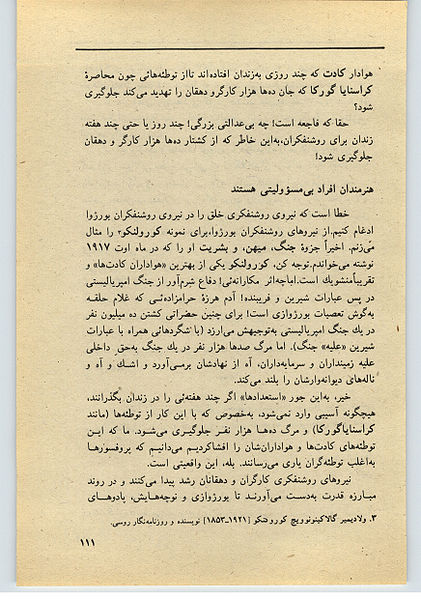 هوادار کادت که چند روزی به‌زندان افتاده‌اند تااز توطئه‌هائی چون محاصرهٔ
کراسنایا گورکا که جان ده‌ها هزار کارگرو دهقان را تهدید می‌کند جلوگیری
شود؟
حقا که فاجعه است! چه بی‌عدالتی بزرگی! چند روز یا حتی چند هفته
زندان برای روشنفکران،به‌این خاطر که از کشتار ده‌ها هزار کارگر و دهقان
جلوگیری شود!
هنرمندان افراد بی‌مسؤولیتی هستند
خطا است که نیروی روشنفکری خلق را در نیروی روشنفکران بورژوا
ادغام کنیم.از نیروهای روشنفکران بورژوا،برای نمونه کورولنکو۳ را مثال
می‌زنم. اخیراً جزوهٔ جنگ، میهن، و بشریت او را که در ماه اوت ۱۹۱۷
نوشته می‌خواندم.توجه کن، کورولنکو یکی از بهترین «هواداران کادت‌ها» و
تقریباًمنشویك است.اماچه‌اثر مکارانه‌ئی! دفاع شرم‌آور از جنگ امپریالیستی
در پس عبارات شیرین و فریبنده! آدم هرزهٔ حرامزاده‌ئی که غلام حلقه
به‌گوش تعصبات بورژوازی است! برای چنین حضراتی کشته‌ن ده میلیون نفر
در یك جنگ امپریالیستی به‌توجیهش می‌ارزد (با شگردهائی همراه با عبارات
شیرین «علیه» جنگ). اما مرگ صدها هزار نفر در یك جنگ به‌حق داخلی
علیه زمینداران و سرمایه‌داران، آه از نهادشان برمی‌آورد و اشك و آه و
ناله‌های دیوانه‌وارشان را بلند می‌کند.
خیر، به‌این جور «استعدادها» اگر چند هفته‌ئی را در زندان بگذرانند،
هیچگونه آسیبی وارد نمی‌شود، به‌خصوص که با این کار از توطئه‌ها (مانند
کراسنایاگورکا) و مرگ ده‌ها هزار نفر جلوگیری می‌شود. ما که این
توطئه‌های کادت‌ها و هوادارانشان را افشاکردیم می‌دانیم که پروفسورها
به‌اغلب توطئه‌گران یاری می‌رسانند. بله، این واقعیتی است.
نیروهای روشنفکری کارگران و دهقانان رشد پیدا می‌کنند و در روند
مبارزه قدرت به‌دست می‌آورند تا بورژوازی و نوچه‌هایش، پادوهای
۳. ولادیمیر گالاکتیونوویچ کورولنکو [۱۹۲۱ـ۱۸۵۳] نویسنده و روزنامه‌نگار روسی.
۱۱۱